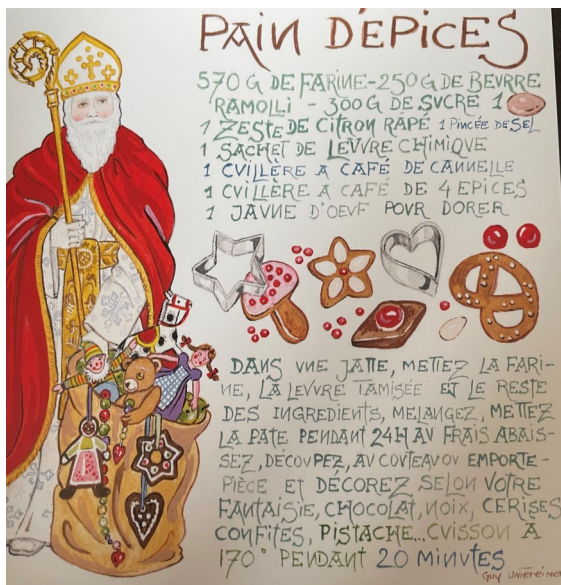 PAIN D'ÉPICES
570 G DE FARINE-250 G DE BEVRRE
RAMOLLI - 300 G DE SVCRE 1
1 ZESTE DE CITRON RÂPÉ 1 PINCÉE DE SEL
1 SACHET DE LEVVRE CHIMIQVE
1 CVILLÈRE A CAFÉ DE CANNELLE
1 CVILLÈRE A CAFÉ DE 4 EPICES
1 JAVNE D'OEVF POVR DORER
DANS VNE JATTE, METTEZ LA FARI-
NE, LA LEVVRE TAMISÉE ET LE RESTE
DES INGREDIENTS, MELANGEZ, METTEZ
LA PATE PENDANT 24H AV FRAIS ABAIS-
SEZ, DÉCOVPEZ, AV COVTEAV OV EMPORTE-
PIÈCE ET DÉCOREZ SELON VOTRE
FANTAISIE, CHOCOLAT, NOIX, CERISES
CONFITES, PISTACHE... CVISSON A
170° PENDANT 20 MINVTES
GUY